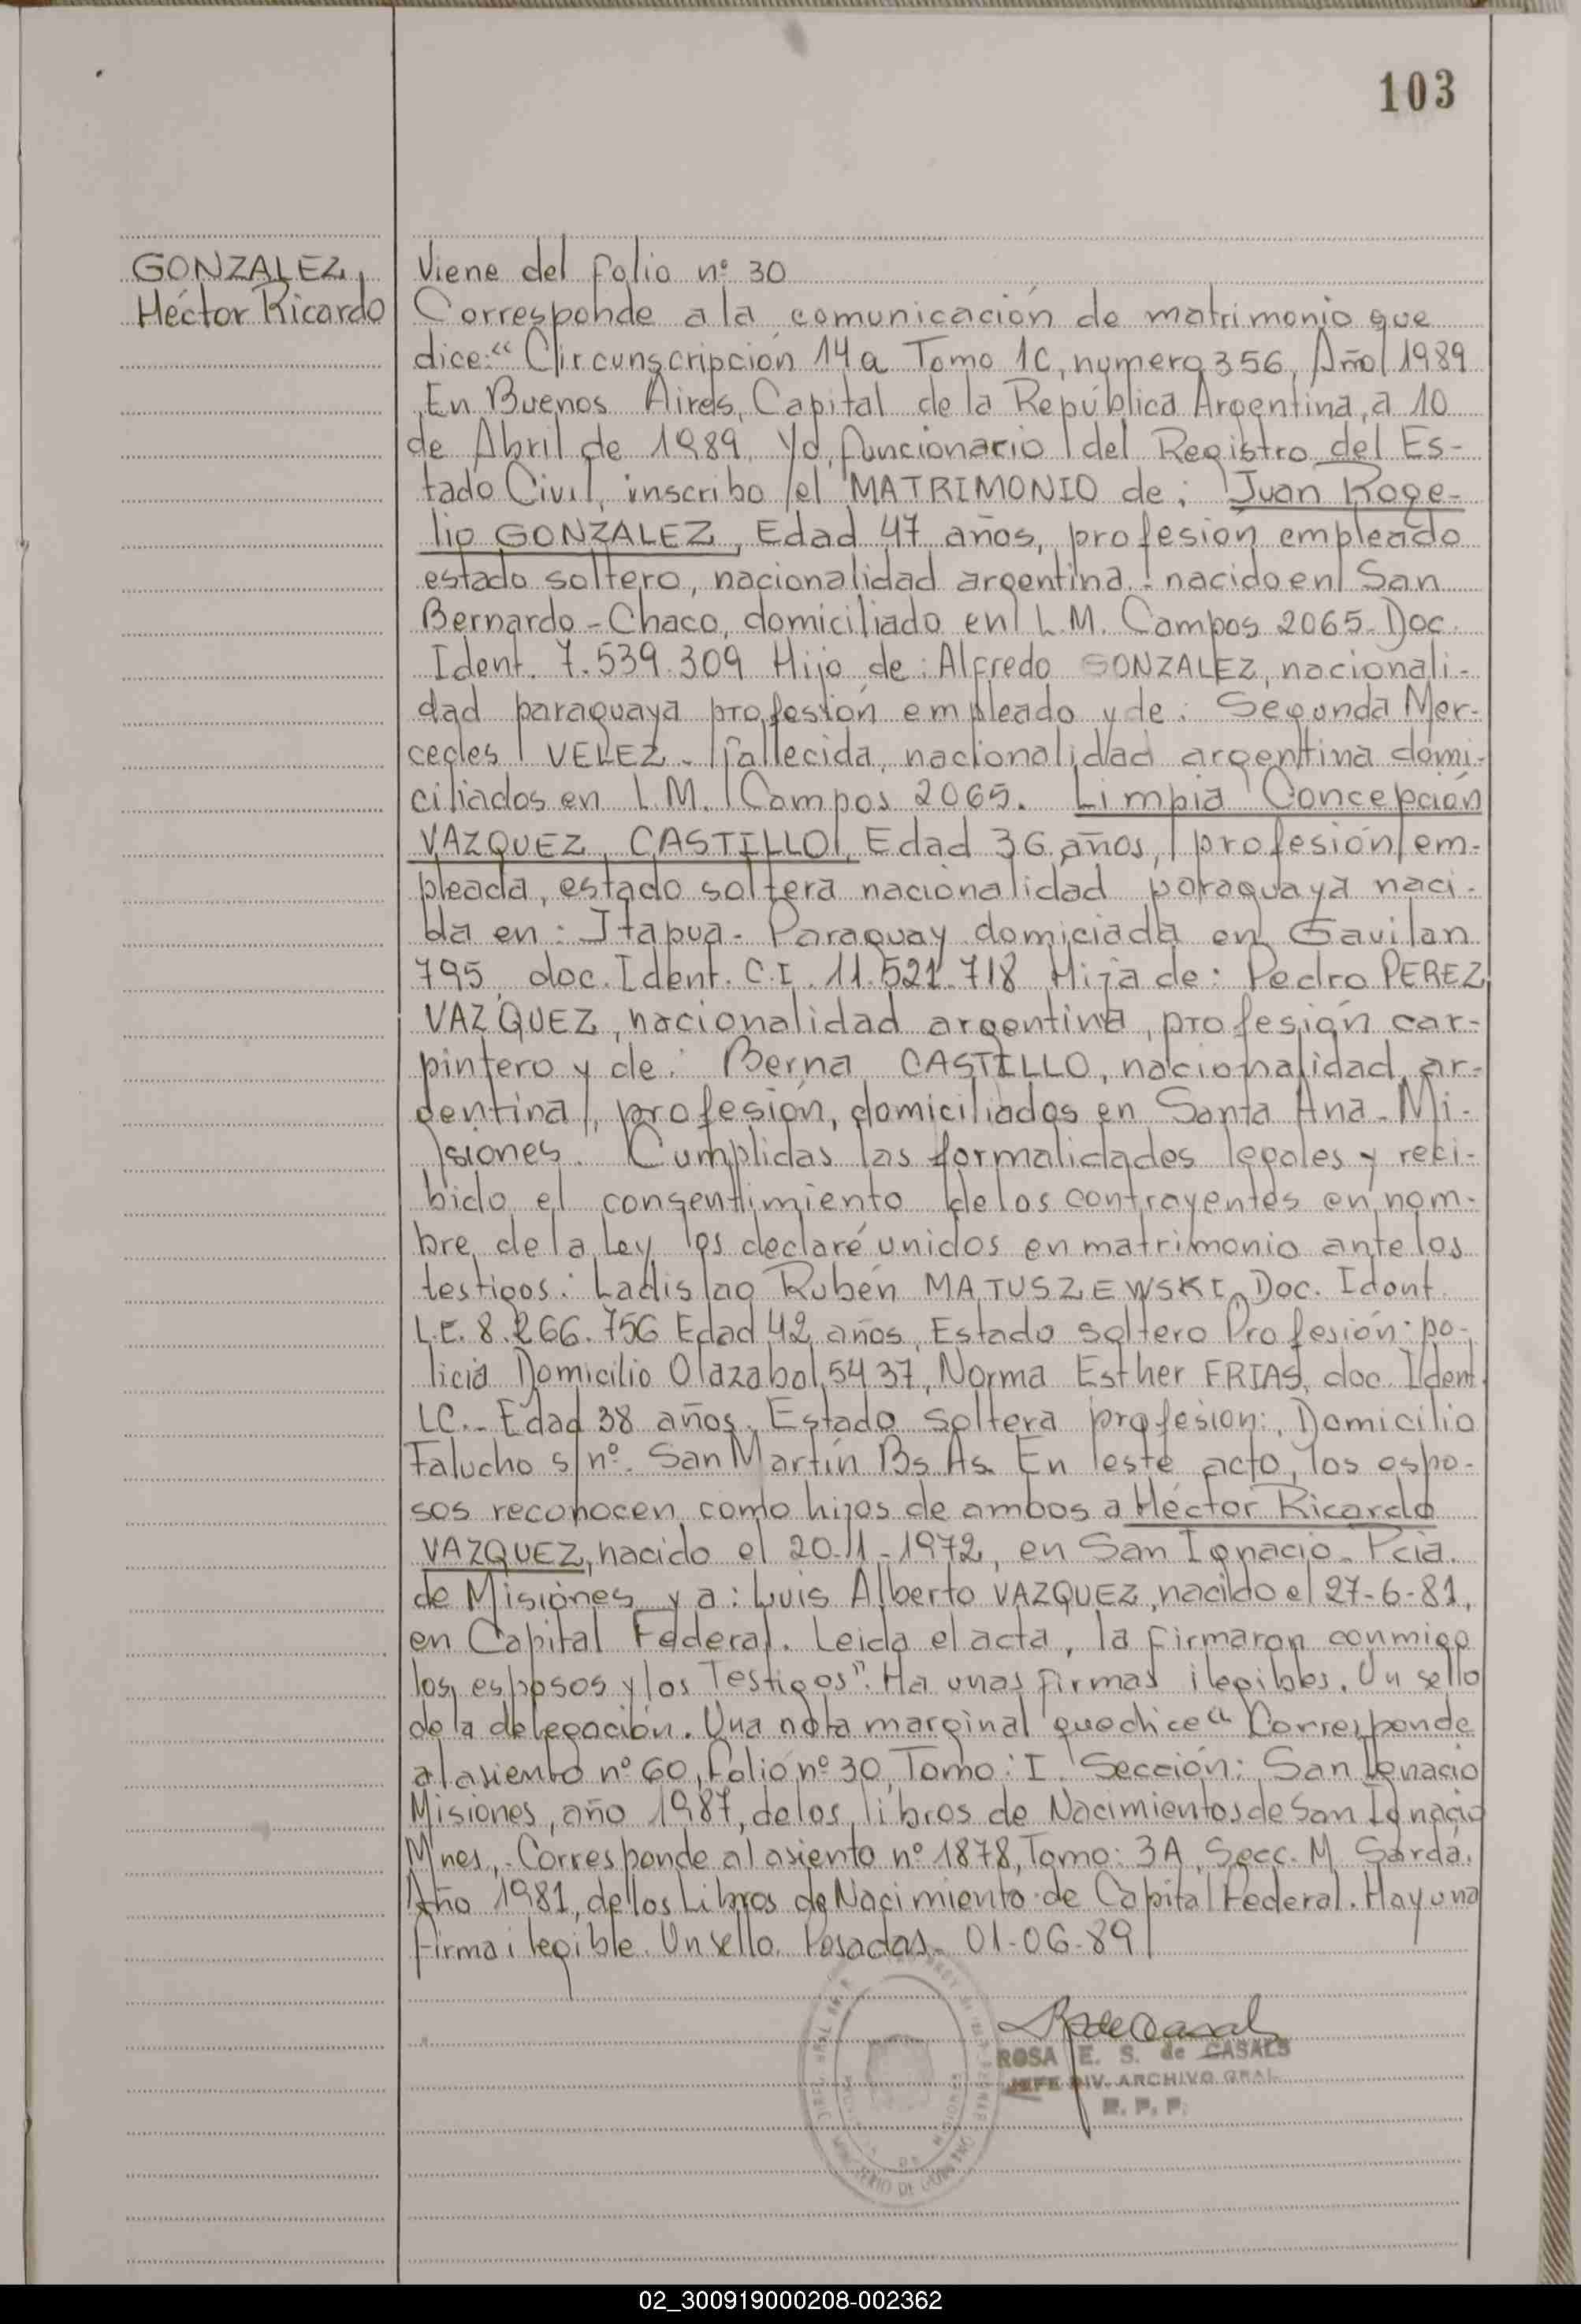 103
GONZALEZ,
Héctor Ricardo
Viene del folio nº 30
Corresponde a la comunicación de matrimonio que
dice:" Circunscripción 14a Tomo 1C, numero 356, Año 1989
En Buenos Aires, Capital de la República Argentina, a 10
de Abril de 1989. Yo, funcionario del Registro del Es-
tado Civil, inscribo el MATRIMONIO de: Juan Roge-
lio GONZALEZ, Edad 47 años, profesión empleado
estado soltero, nacionalidad argentina - nacido en San
Bernardo - Chaco, domiciliado en L.M. Campos 2065- Doc.
Ident. 7.539.309 Hijo de: Alfredo GONZALEZ, nacionali-
dad paraguaya profesión empleado y de: Segunda Mer-
cedes VELEZ - fallecida, nacionalidad argentina domi-
ciliados en L.M. Campos 2065. Limpia Concepción
VAZQUEZ, CASTILLO, Edad 36 años, profesión em-
pleada, estado soltera nacionalidad paraguaya naci-
da en: Itapua - Paraguay domiciada en Gavilan
795, doc. Ident. C.I. 11.521.718 Hija de: Pedro PEREZ
VAZQUEZ, nacionalidad argentina, profesión car-
pintero y de: Berna CASTILLO, nacionalidad ar-
gentina, profesión, domiciliados en Santa Ana - Mi-
siones. Cumplidas las formalidades legales y reci-
bido el consentimiento de los contrayentes en nom-
bre de la Ley los declaré unidos en matrimonio ante los
testigos: Ladislao Rubén MATUSZEWSKI, Doc. Ident.
L.E. 8.266.756 Edad 42 años, Estado soltero Profesión: po-
licia Domicilio Olazabal 5437, Norma Esther FRIAS, doc. Ident.
LC.- Edad 38 años, Estado soltera profesion:, Domicilio
Falucho s/nº. San Martín Bs As. En este acto, los espo-
sos reconocen como hijos de ambos a Héctor Ricardo
VAZQUEZ, nacido el 20-11-1972, en San Ignacio - Pcia.
de Misiones y a: Luis Alberto VAZQUEZ, nacido el 27-6-81,
en Capital Federal. Leida el acta, la firmaron conmigo
los esposos y los Testigos". Ha unas firmas ilegibles. Un sello
de la delegación. Una nota marginal que dice " Corresponde
al asiento nº 60, folio nº 30, Tomo: I. Sección: San Ignacio
Misiones, año 1987, de los libros de Nacimientos de San Ignacio
Mnes,- Corresponde al asiento nº 1878, Tomo: 3A, Secc. M. Sardá.
Año 1981, de los Libros de Nacimiento de Capital Federal. Hay una
firma ilegible. Un sello. Posadas - 01-06-89
ROSA E. S. de CASALS
JEFE DIV. ARCHIVO GRAL.
R. P. P.
02_300919000208-002362